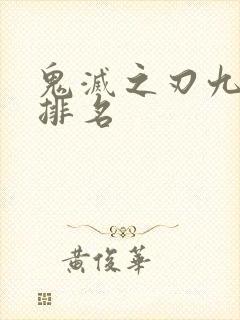 鬼滅之刃九
排名
黃俊華